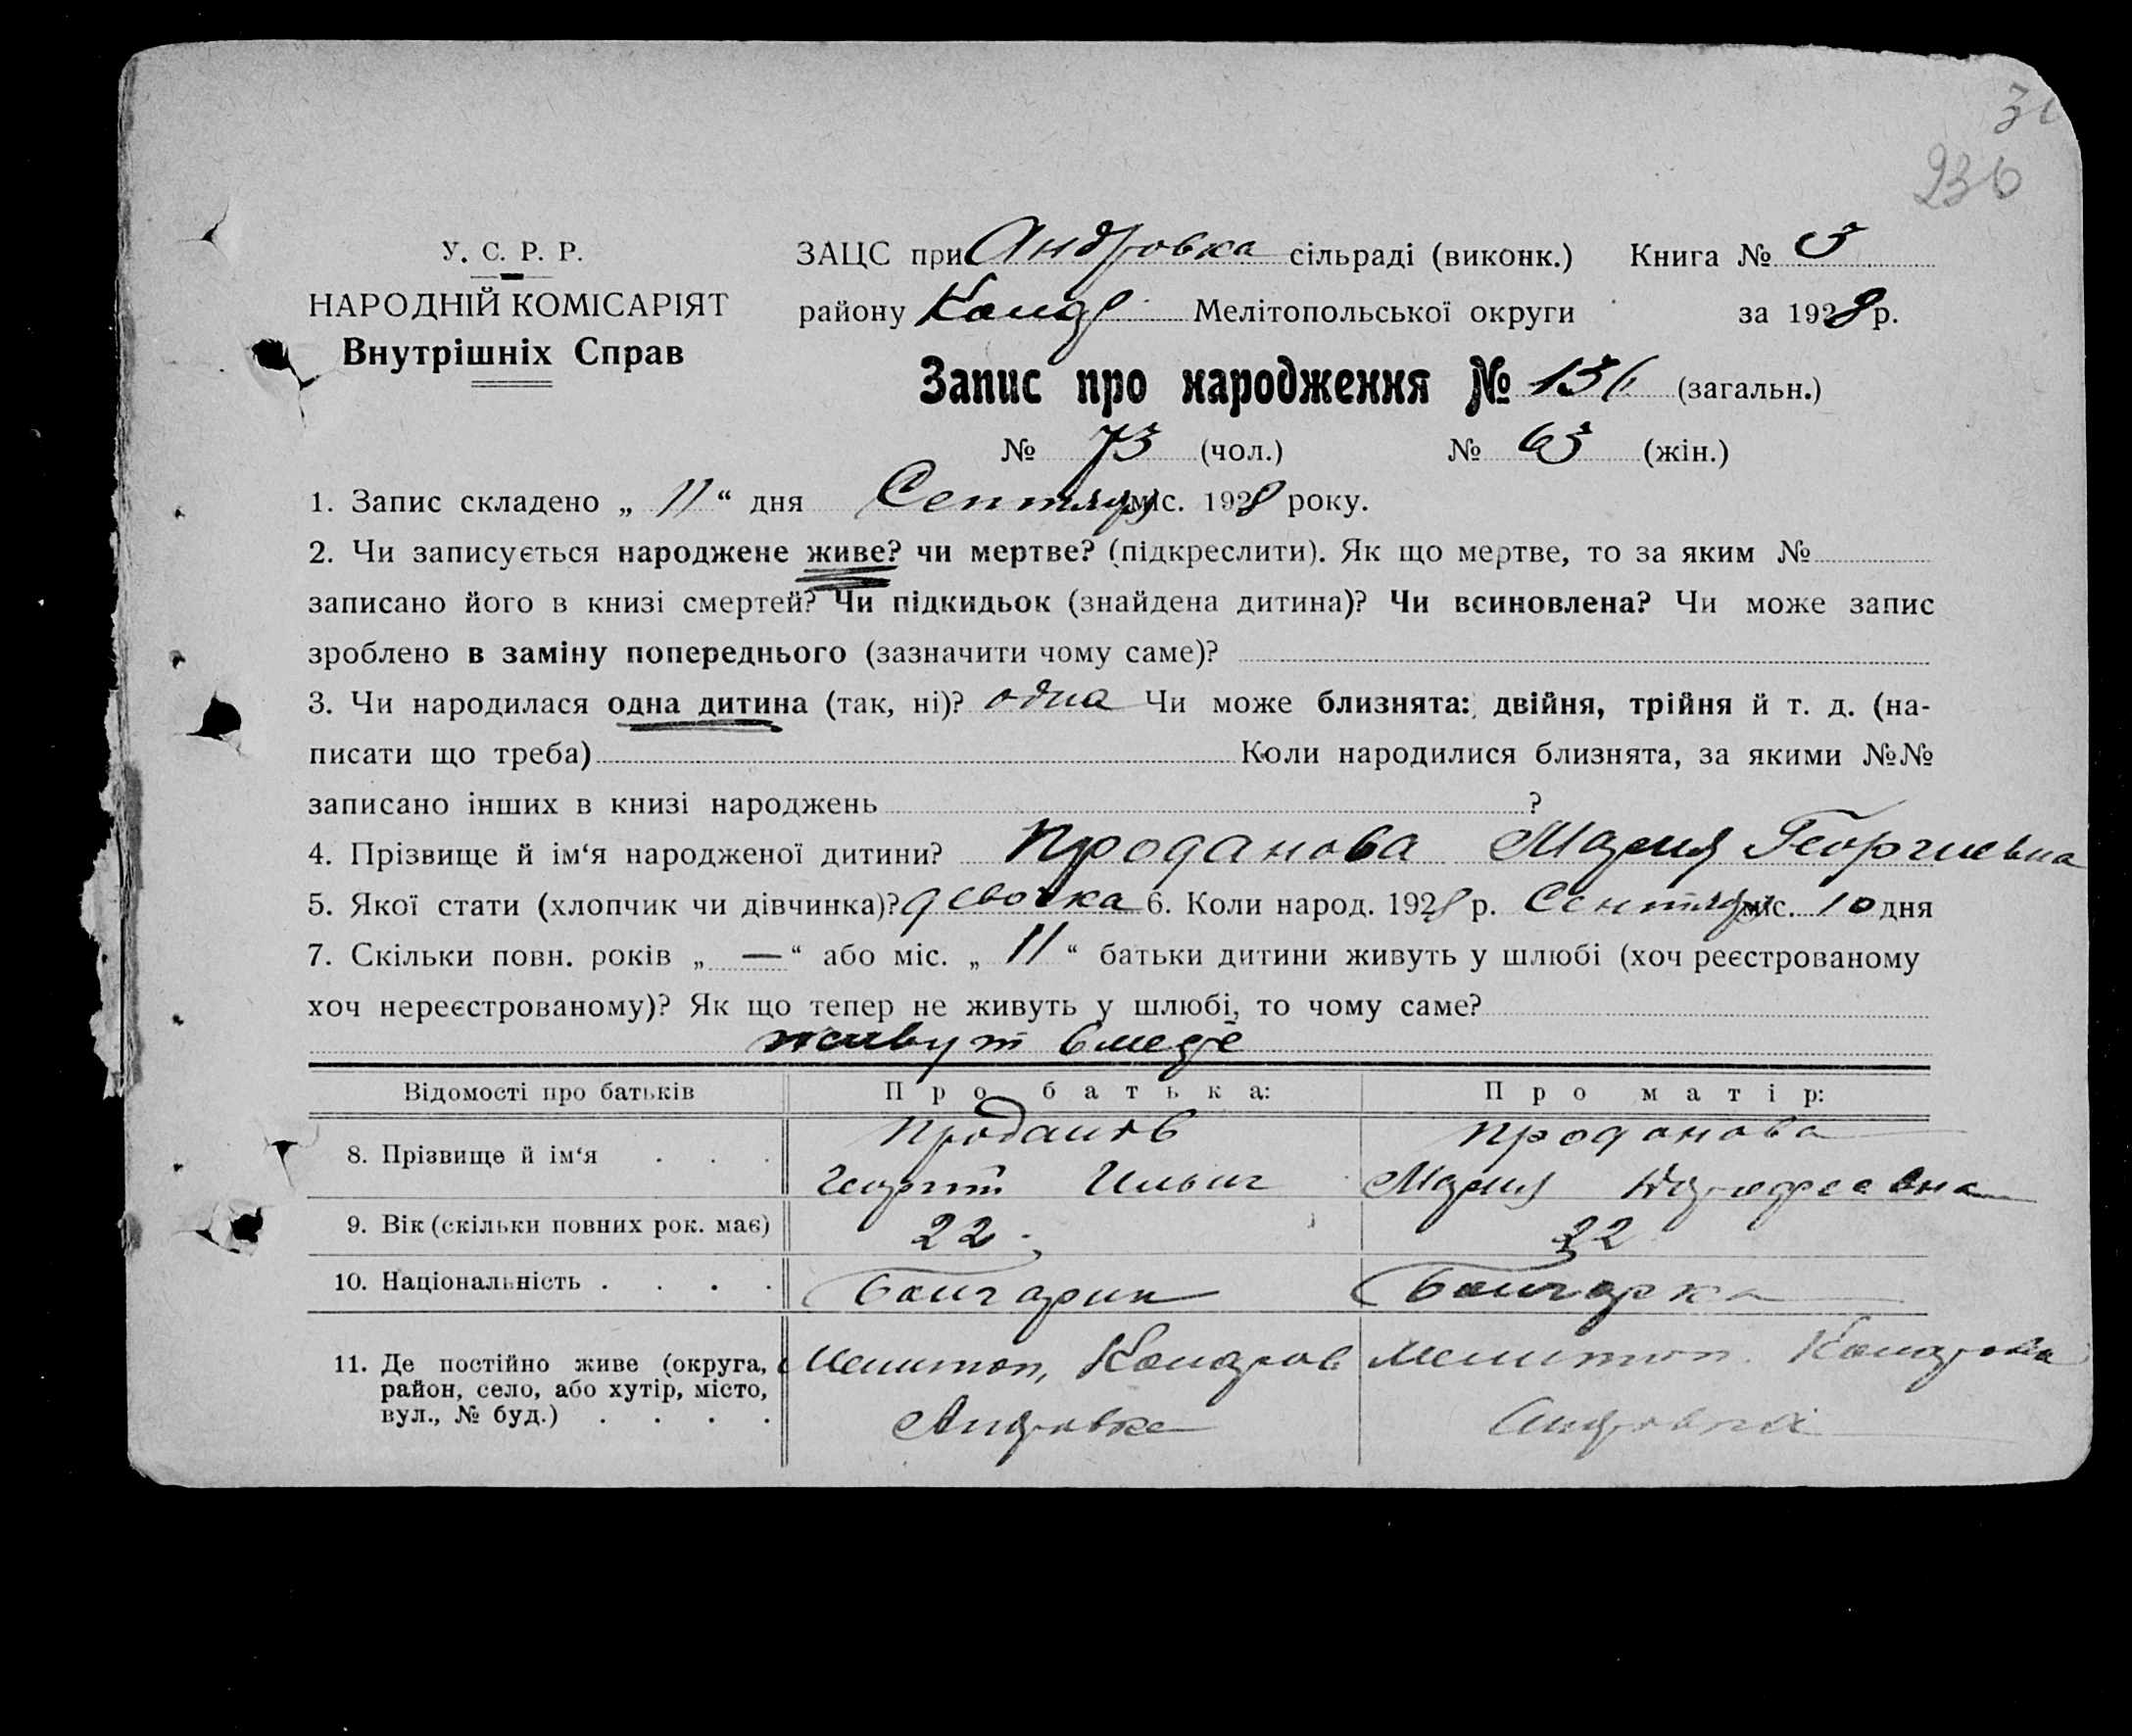 236
У. С. Р. Р.
НАРОДНІЙ КОМІСАРІЯТ
Внутрішніх Справ
ЗАЦС при Андровка сільраді (виконк.) Книга № 3
району Мелітопольської округи за 1928 р.
Запис про народження № 136 (загальн.)
№ 73 (чол.) № 63 (жін.)
1. Запис складено „ 11 “ дня Сентяб міс. 1928 року.
2. Чи записується народжене живе? чи мертве? (підкреслити). Як що мертве, то за яким №
записано його в книзі смертей? Чи підкидьок (знайдена дитина)? Чи всиновлена? Чи може запис
зроблено в заміну попереднього (зазначити чому саме)?
3. Чи народилася одна дитина (так, ні)? одна Чи може близнята: двійня, трійня й т. д. (на-
писати що треба) Коли народилися близнята, за якими №№
записано інших в книзі народжень ?
4. Прізвище й ім‘я народженої дитини? Проданова Мария Георгиевна
5. Якої стати (хлопчик чи дівчинка)? девочка 6. Коли народ. 1928 р. Сентяб міс. 10 дня
7. Скільки повн. років „ — “ або міс. „ 11 “ батьки дитини живуть у шлюбі (хоч реєстрованому
хоч нереєстрованому)? Як що тепер не живуть у шлюбі, то чому саме?
живут
Відомості про батьків Про батька: Про матір:
8. Прізвище й ім‘я Проданов Проданова
Георгий Ильич Мария
9. Вік (скільки повних рок. має) 22 22
10. Національність Болгарин Болгарка
11. Де постійно живе (округа, район, село, або хутір, місто, вул., № буд.) Мелитоп, Коларов Мелитоп. Коларовка
Андровка Андровка